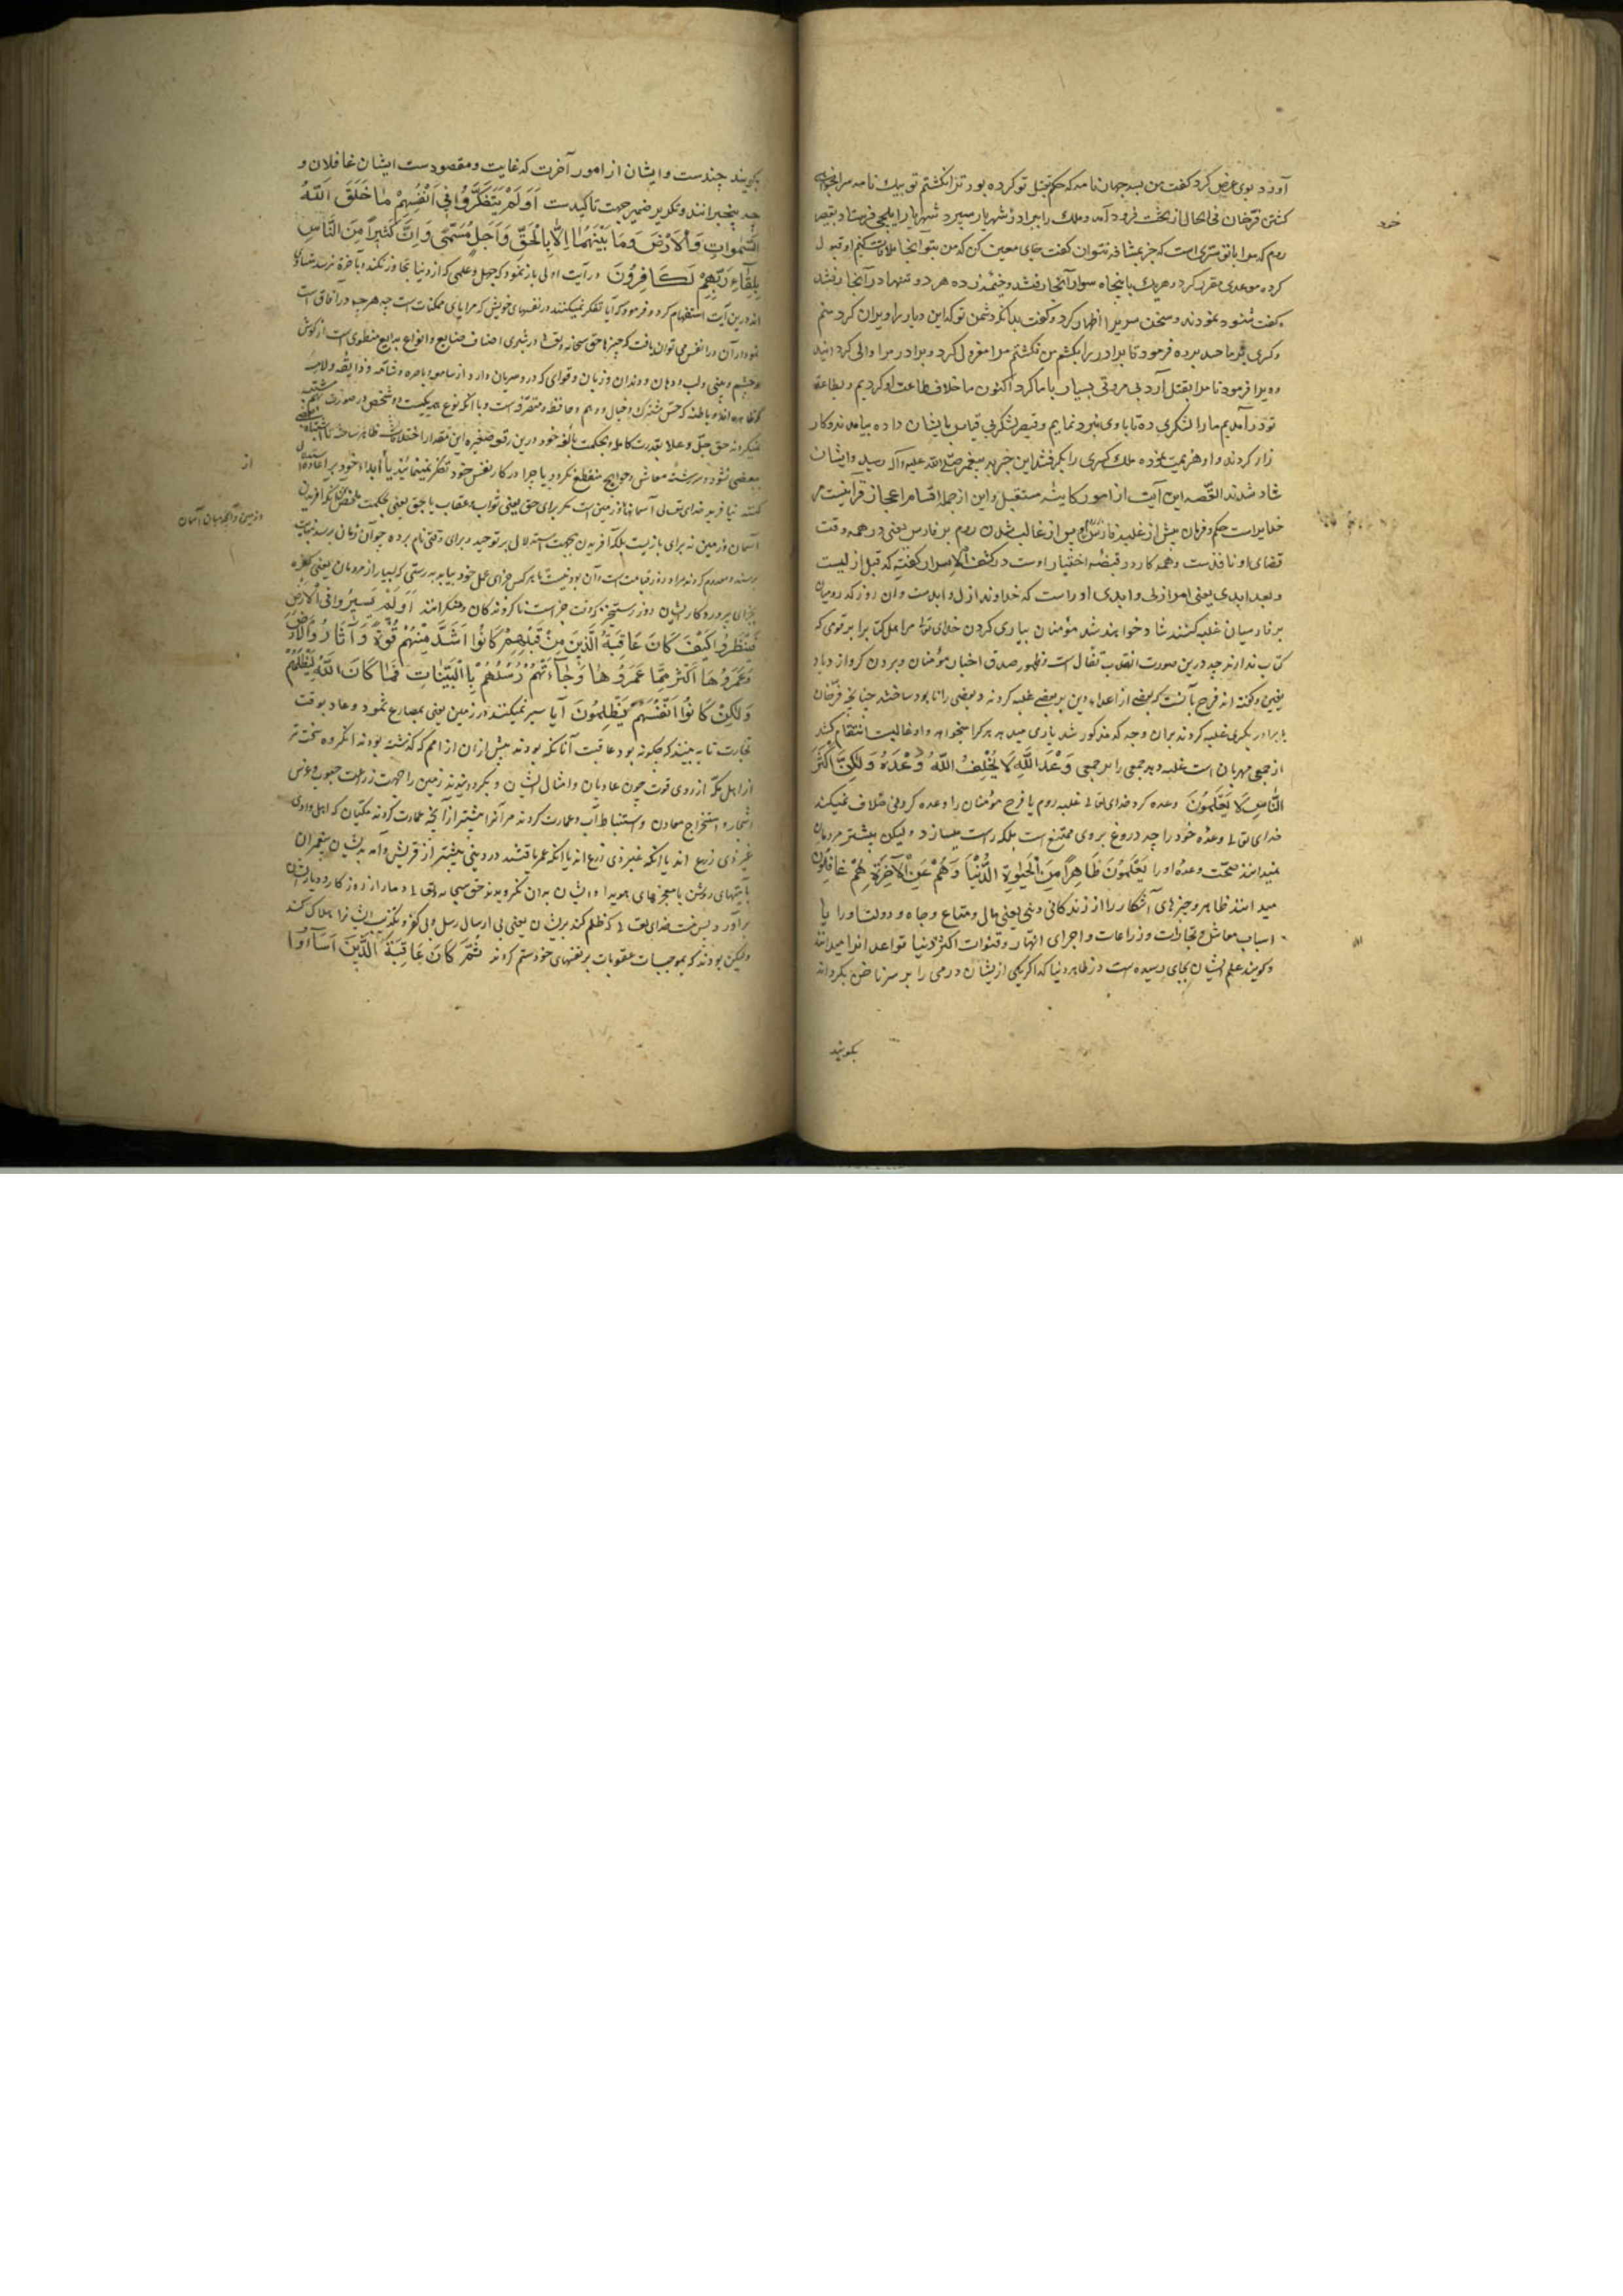 آورد و بوی عرض کرد کفت من بسه جهان نامه که حکم بقتل تو کرده بود ترا نکشتم تو بیک نامه مرا میخواهی
کشتن فرّخان فی الحال از تخت فرود آمد و ملک را ببرادر شهریار سپرد شهریار ایلچی فرستاد بقیصر
خود
روم که مرا با تو سرّی است که جز بمشافهه نتوان کفت جای معین کن که من بتو آنجا ملاقات کنم او قبول
کرده موعدی مقرر کرد و هریک با پنجاه سوار آنجا رفتند و خیمه زده هر دو تنها در آنجا رفتند
کفت شنود نمودند و سخن سربرا اظهار کرد و کفت بدانکه دشمن تو که این دیار را ویران کرد منم
و کسری بر ما حسد برده فرمود تا برادر را بکشم من نکشتم مرا معزول کرد و برادر مرا والی کردانید
وویرا فرمود تا مرا بقتل آرد بی مروتی بسیار با ما کرد اکنون ما خلاف طاعت او کردیم و بطاعت
تو درآمدیم ما را لشکری ده تا با وی نبرد نمایم و قیصر لشکر بی قیاس بایشان داده بیامدند و کار
زار کردند و او هزیمت نموده ملک کسری را بکرفتند این خبر به پیغمبر صلی الله علیه و آله رسید و ایشان
شاد شدند القصه این آیت از امور کاینه مستقبل و این از جمله اقسام اعجاز قرآنیست مر
خدایراست حکم و فرمان پیش از غلبه فارس و پس از غالب شدن روم بر فارس یعنی در همه وقت
قضای او نافذست و همه کار در قبضه اختیار اوست در کشف الاسرار کفته که قبل ازلیست
و بعد ابدی یعنی امر ازلی و ابدی او راست که خداوند ازل و ابدست و آن روز که رومیان
بر فارسیان غلبه کنند شاد خواهند شد مؤمنان بیاری کردن خدای تعالی مر اهل کتابرا بر قومی که
کتاب ندارند چه درین صورت انقلاب تفأل است و ظهور صدق اخبار مؤمنان و بردن کرو و ازدیاد
یقین و کفته اند فرح بآنست که بعضی از اعداء دین بر بعضی غلبه کردند و بعضی را نابود ساختند چنانچه فرّخان
با برادر بکسری غلبه کردند بران وجه که مذکور شد یاری میدهد هر کرا میخواهد و او غالبست انتقام کشد
از جمعی مهربان است غلبه دهد جمعی را بر جمعی وَعْدَ اللَّهِ لَا يُخْلِفُ اللَّهُ وَعْدَهُ وَلَكِنَّ أَكْثَرَ
النَّاسِ لَا يَعْلَمُونَ وعده کرد خدای تعالی غلبه روم یا فرح مؤمنان را وعده کردنی خلاف نمیکند
خدای تعالی وعده خود را چه دروغ بر وی ممتنع است بلکه راست میسازد و لیکن بیشتر مردمان
نمیدانند صحّت وعده او را يَعْلَمُونَ ظَاهِرًا مِنَ الْحَيَوةِ الدُّنْيَا وَهُمْ عَنِ الْآخِرَةِ هُمْ غَافِلُونَ
میدانند ظاهر و چیزهای آشکار را از زندکانی دنیی یعنی مال و متاع و جاه و دولت او را یا
اسباب معاش و تجارات و زراعات و اجرای انهار و قنوات اکثر دنیا قواعد آنرا میدانند
و کویند علم ایشان بجای رسیده است در ظاهر دنیا که اکر یکی از ایشان درمی را بر سر ناخن بکرداند
بکویند
بکویند چندست و ایشان از امور آخرت که غایت و مقصودست ایشان غافلان و
بیخبرانند و تکریر ضمیر جهت تاکیدست أَوَلَمْ يَتَفَكَّرُوا فِي أَنْفُسِهِمْ مَا خَلَقَ اللَّهُ
السَّمَوَاتِ وَالْأَرْضَ وَمَا بَيْنَهُمَا إِلَّا بِالْحَقِّ وَأَجَلٍ مُسَمًّى وَإِنَّ كَثِيرًا مِنَ النَّاسِ
بِلِقَاءِ رَبِّهِمْ لَكَافِرُونَ در آیت اولی باز نمود که جهل و علمی که از دنیا تجاوز نکند و بآخرة نرسد متساوی
اند درین آیت استفهام کرد و فرمود که آیا تفکر نمیکنند در نفسهای خویش که مرایای ممکنات است چه هر چه در آفاق است
نمودار آن در انفس می توان یافت که چیزها حق سبحانه و تعالی در بشری اصناف صنایع و انواع بدایع منطوی است از کوش
و چشم و بینی و لب و دهان و دندان و زبان و قوای که در و سریان دارد از سامعه و باصره و شامه و ذایقه و لامسه
که ظاهره اند و باطنه که حسّ مشترک و خیال و وهم و حافظه و متصرّفه است و با آنکه نوع همه یکیست دو شخص در صورت مشتبه
نمیکردند حق جل و علا بقدرت کامله و بحکمت بالغه خود درین رقعه صغیره این مقدار اختلاف ظاهر ساخته تا اشتباه
از
ببعضی نشود و سررشته معاش و حوایج منقطع نکردد یا چرا در کار نفس خود تفکر نمینمایند تا بابداء خود بر اعاده استدلال
کنند نیافرید خدای تعالی آسمانها و زمین است مکر برای حق یعنی ثواب و عقاب یا بحق یعنی بحکمت
و زمین و آنچه میان آسمان
آسمان و زمین نه برای بازیست بلکه آفریدن بجهت استدلال بر توحید و برای وقتی نام برده چون آن زمان برسد نهایت
برسند و معدوم کردند مراد روز قیامت است و آن بودنیست تا هر کس جزای عمل خود بیابد بدرستی که بسیار از مردمان یعنی کفره
بجزای پروردکار ایشان روز رستخیز که وقت جزا است ناکروندکان و منکرانند أَوَلَمْ يَسِيرُوا فِي الْأَرْضِ
فَيَنْظُرُوا كَيْفَ كَانَ عَاقِبَةُ الَّذِينَ مِنْ قَبْلِهِمْ كَانُوا أَشَدَّ مِنْهُمْ قُوَّةً وَأَثَارُوا الْأَرْضَ
وَعَمَرُوهَا أَكْثَرَ مِمَّا عَمَرُوهَا وَجَاءَتْهُمْ رُسُلُهُمْ بِالْبَيِّنَاتِ فَمَا كَانَ اللَّهُ لِيَظْلِمَهُمْ
وَلَكِنْ كَانُوا أَنْفُسَهُمْ يَظْلِمُونَ آیا سیر نمیکنند در زمین یعنی بمصارع ثمود و عاد بوقت
تجارت تا به بینند که چکونه بود عاقبت آنانکه بودند پیش از ان از امم که کذشته بودند آنکروه سخت تر
از اهل مکه از روی قوت چون عادیان و امثال ایشان و بکردانیدند زمین را بجهت زراعت حبوب و غرس
اشجار و استخراج معادن و استنباط آب و عمارت کردند مر آنرا بیشتر از آنچه عمارت کردند مکیان که اهل وادی
غیر ذی زرع اند یا آنکه عمر یافتند در دنیی بیشتر از قریش و آمد بدیشان پیغمبران
بآیتهای روشن یا معجزهای هویدا و ایشان بدان نکرویدند حق سبحانه و تعالی دمار از روزکار و دیار ایشان
برآورد پس نیست خدای تعالی که ظلم کند بر ایشان یعنی بی ارسال رسل و بی کفر و تکذیب ایشانرا هلاک کند
ولیکن بودند که بموجبات عقوبات بر نفسهای خود ستم کردند ثُمَّ كَانَ عَاقِبَةَ الَّذِينَ أَسَاؤُا